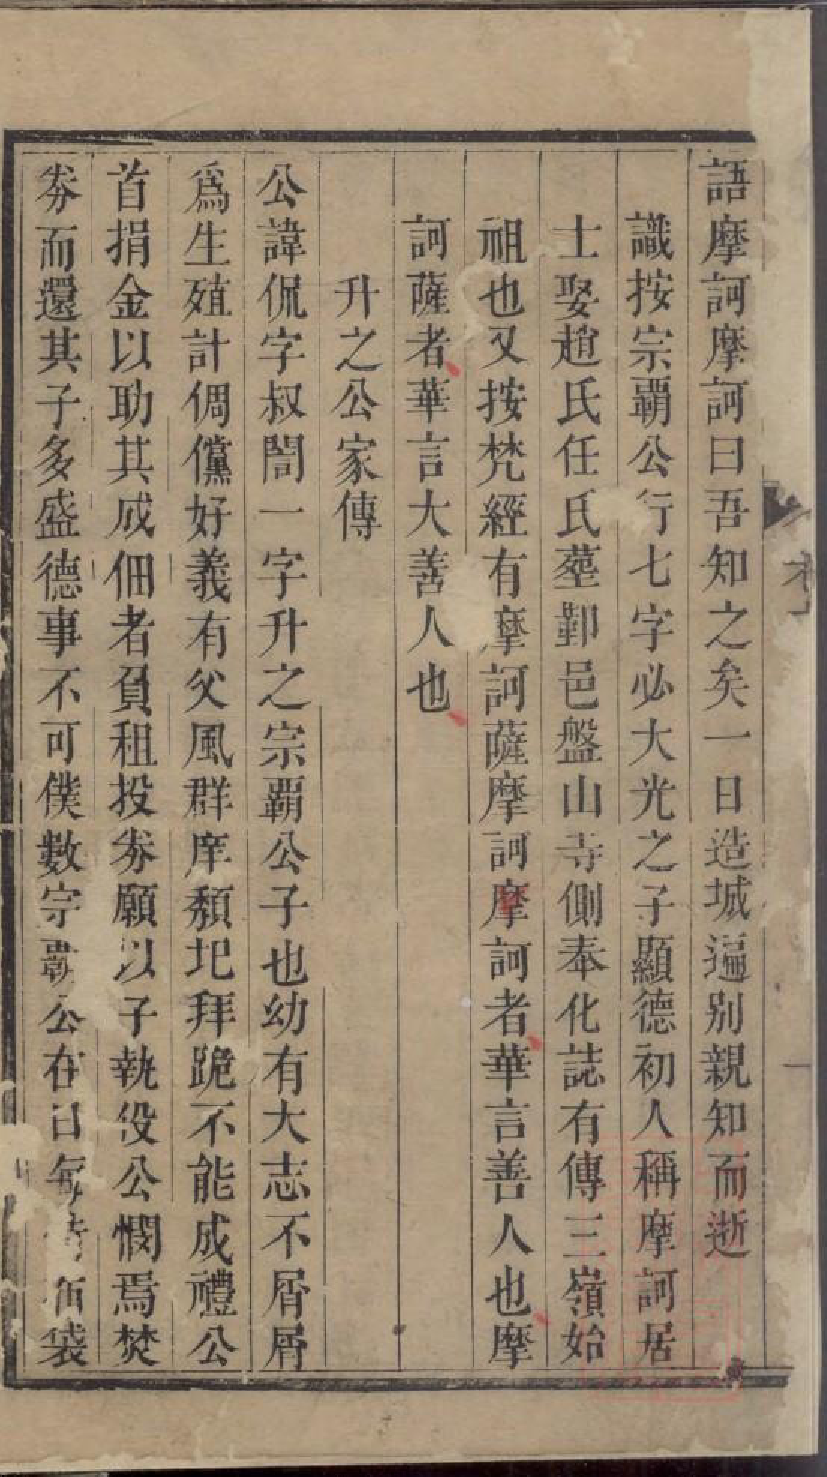 語摩訶摩訶曰吾知之矣一日造城遍別親知而逝
識按宗霸公行七字必大光之子顯德初人稱摩訶居
士娶趙氏任氏塟鄞邑盤山寺側奉化誌有傳三嶺始
祖也又按梵經有摩訶薩摩訶摩訶者華言善人也摩
訶薩者華言大善人也
升之公家傳
公諱侃字叔誾一字升之宗霸公子也幼有大志不屑屑
爲生殖計倜儻好義有父風群庠頽圯拜跪不能成禮公
首捐金以助其成佃者負租投券願以子執役公憫焉焚
券而還其子多盛德事不可僕數宗霸公在日每 布袋